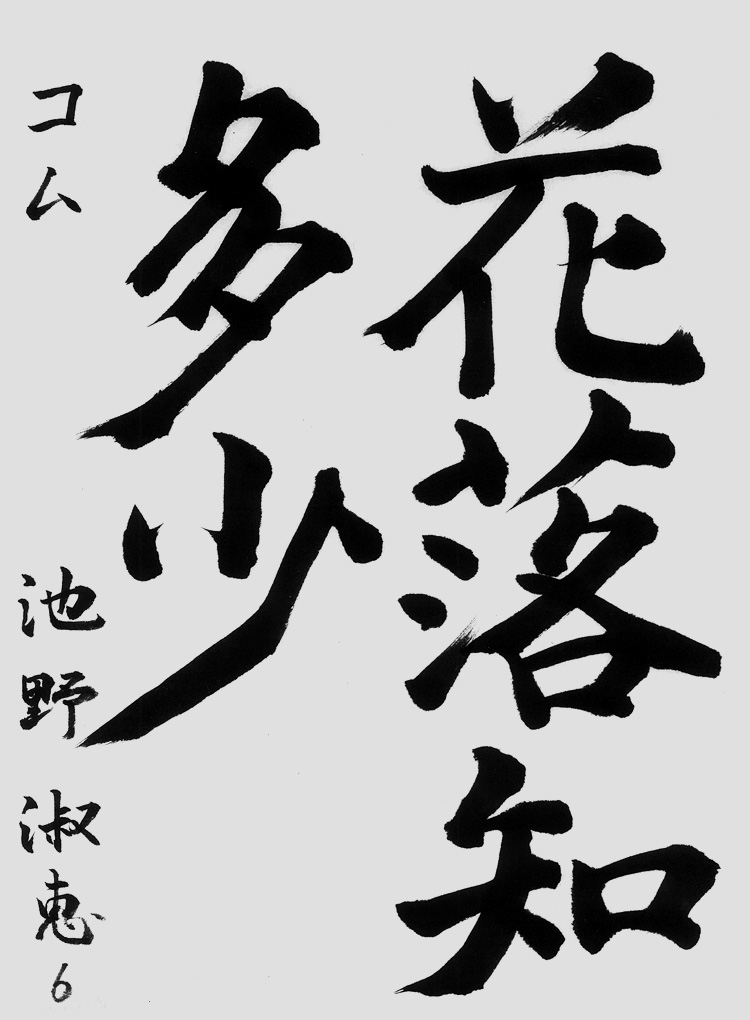 花落知
多少
コム 池野淑恵6